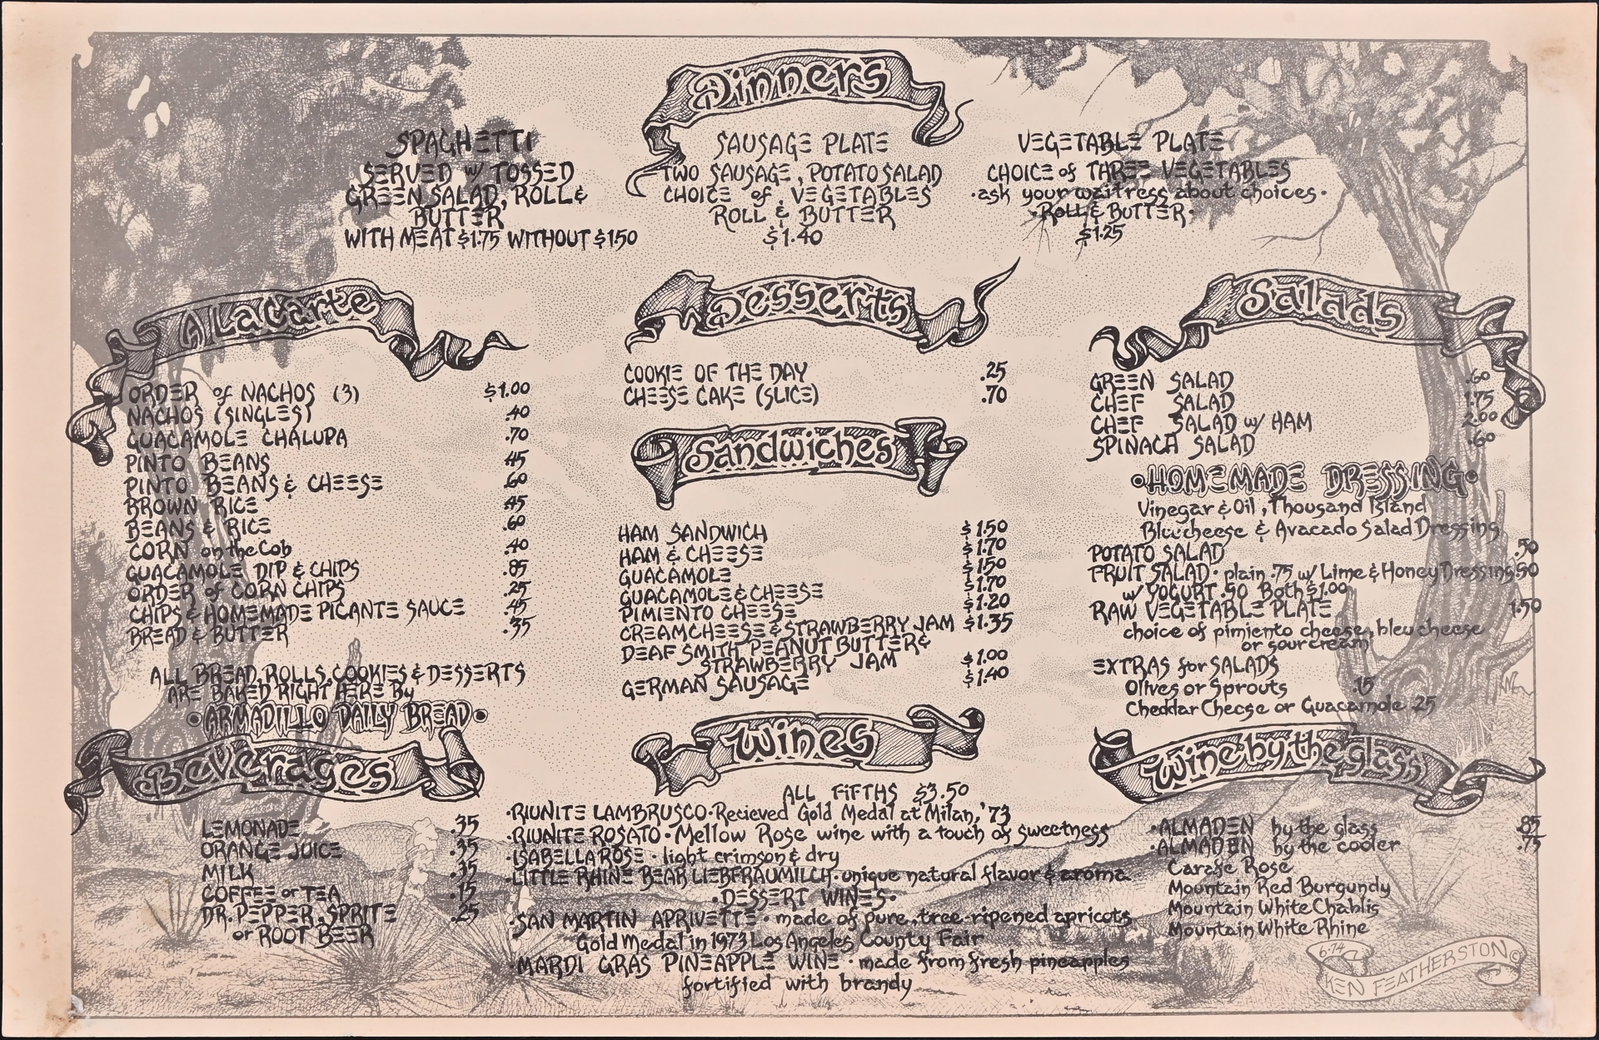 Dinners
SPAGHETTI
SERVED w/ TOSSED
GREEN SALAD, ROLL &
BUTTER
WITH MEAT $1.75 WITHOUT $1.50
SAUSAGE PLATE
TWO SAUSAGE, POTATO SALAD
CHOICE of VEGETABLES
ROLL & BUTTER
$1.40
VEGETABLE PLATE
CHOICE of THREE VEGETABLES
·ask your waitress about choices·
·ROLL & BUTTER·
$1.25
A La Carte
ORDER of NACHOS (3) $1.00
NACHOS (SINGLES) .40
GUACAMOLE CHALUPA .70
PINTO BEANS .45
PINTO BEANS & CHEESE .60
BROWN RICE .45
BEANS & RICE .60
CORN on the Cob .40
GUACAMOLE DIP & CHIPS .85
ORDER of CORN CHIPS .25
CHIPS & HOMEMADE PICANTE SAUCE .45
BREAD & BUTTER .35
ALL BREAD, ROLLS, COOKIES & DESSERTS
ARE BAKED RIGHT HERE By
·ARMADILLO DAILY BREAD·
Desserts
COOKIE OF THE DAY .25
CHEESE CAKE (SLICE) .70
Sandwiches
HAM SANDWICH $1.50
HAM & CHEESE $1.70
GUACAMOLE $1.50
GUACAMOLE & CHEESE $1.70
PIMIENTO CHEESE $1.20
CREAMCHEESE & STRAWBERRY JAM $1.35
DEAF SMITH PEANUT BUTTER &
STRAWBERRY JAM $1.00
GERMAN SAUSAGE $1.40
Salads
GREEN SALAD .60
CHEF SALAD 1.75
CHEF SALAD w/ HAM 2.00
SPINACH SALAD .60
·HOMEMADE DRESSING·
Vinegar & Oil, Thousand Island
Bleucheese & Avacado Salad Dressing
POTATO SALAD .50
FRUIT SALAD · plain .75 w/ Lime & Honey Dressing .90
w/ YOGURT .90 Both $1.00
RAW VEGETABLE PLATE 1.50
choice of pimiento cheese, bleu cheese
or sour cream
EXTRAS for SALADS
Olives or Sprouts .15
Cheddar Cheese or Guacamole .25
Beverages
LEMONADE .35
ORANGE JUICE .35
MILK .35
COFFEE or TEA .15
DR. PEPPER, SPRITE .25
or ROOT BEER
Wines
ALL FIFTHS $3.50
·RIUNITE LAMBRUSCO · Recieved Gold Medal at Milan, '73
·RIUNITE ROSATO · Mellow Rose wine with a touch of sweetness
·ISABELLA ROSE · light crimson & dry
·LITTLE RHINE BEAR LIEBFRAUMILCH · unique natural flavor & aroma
·DESSERT WINES·
·SAN MARTIN APRIVETTE · made of pure, tree-ripened apricots
Gold Medal in 1973 Los Angeles County Fair
·MARDI GRAS PINEAPPLE WINE · made from fresh pineapples
fortified with brandy
Wine by the glass
·ALMADEN by the glass .85
·ALMADEN by the cooler .75
Carafe Rose
Mountain Red Burgundy
Mountain White Chablis
Mountain White Rhine
6·74
KEN FEATHERSTON ©